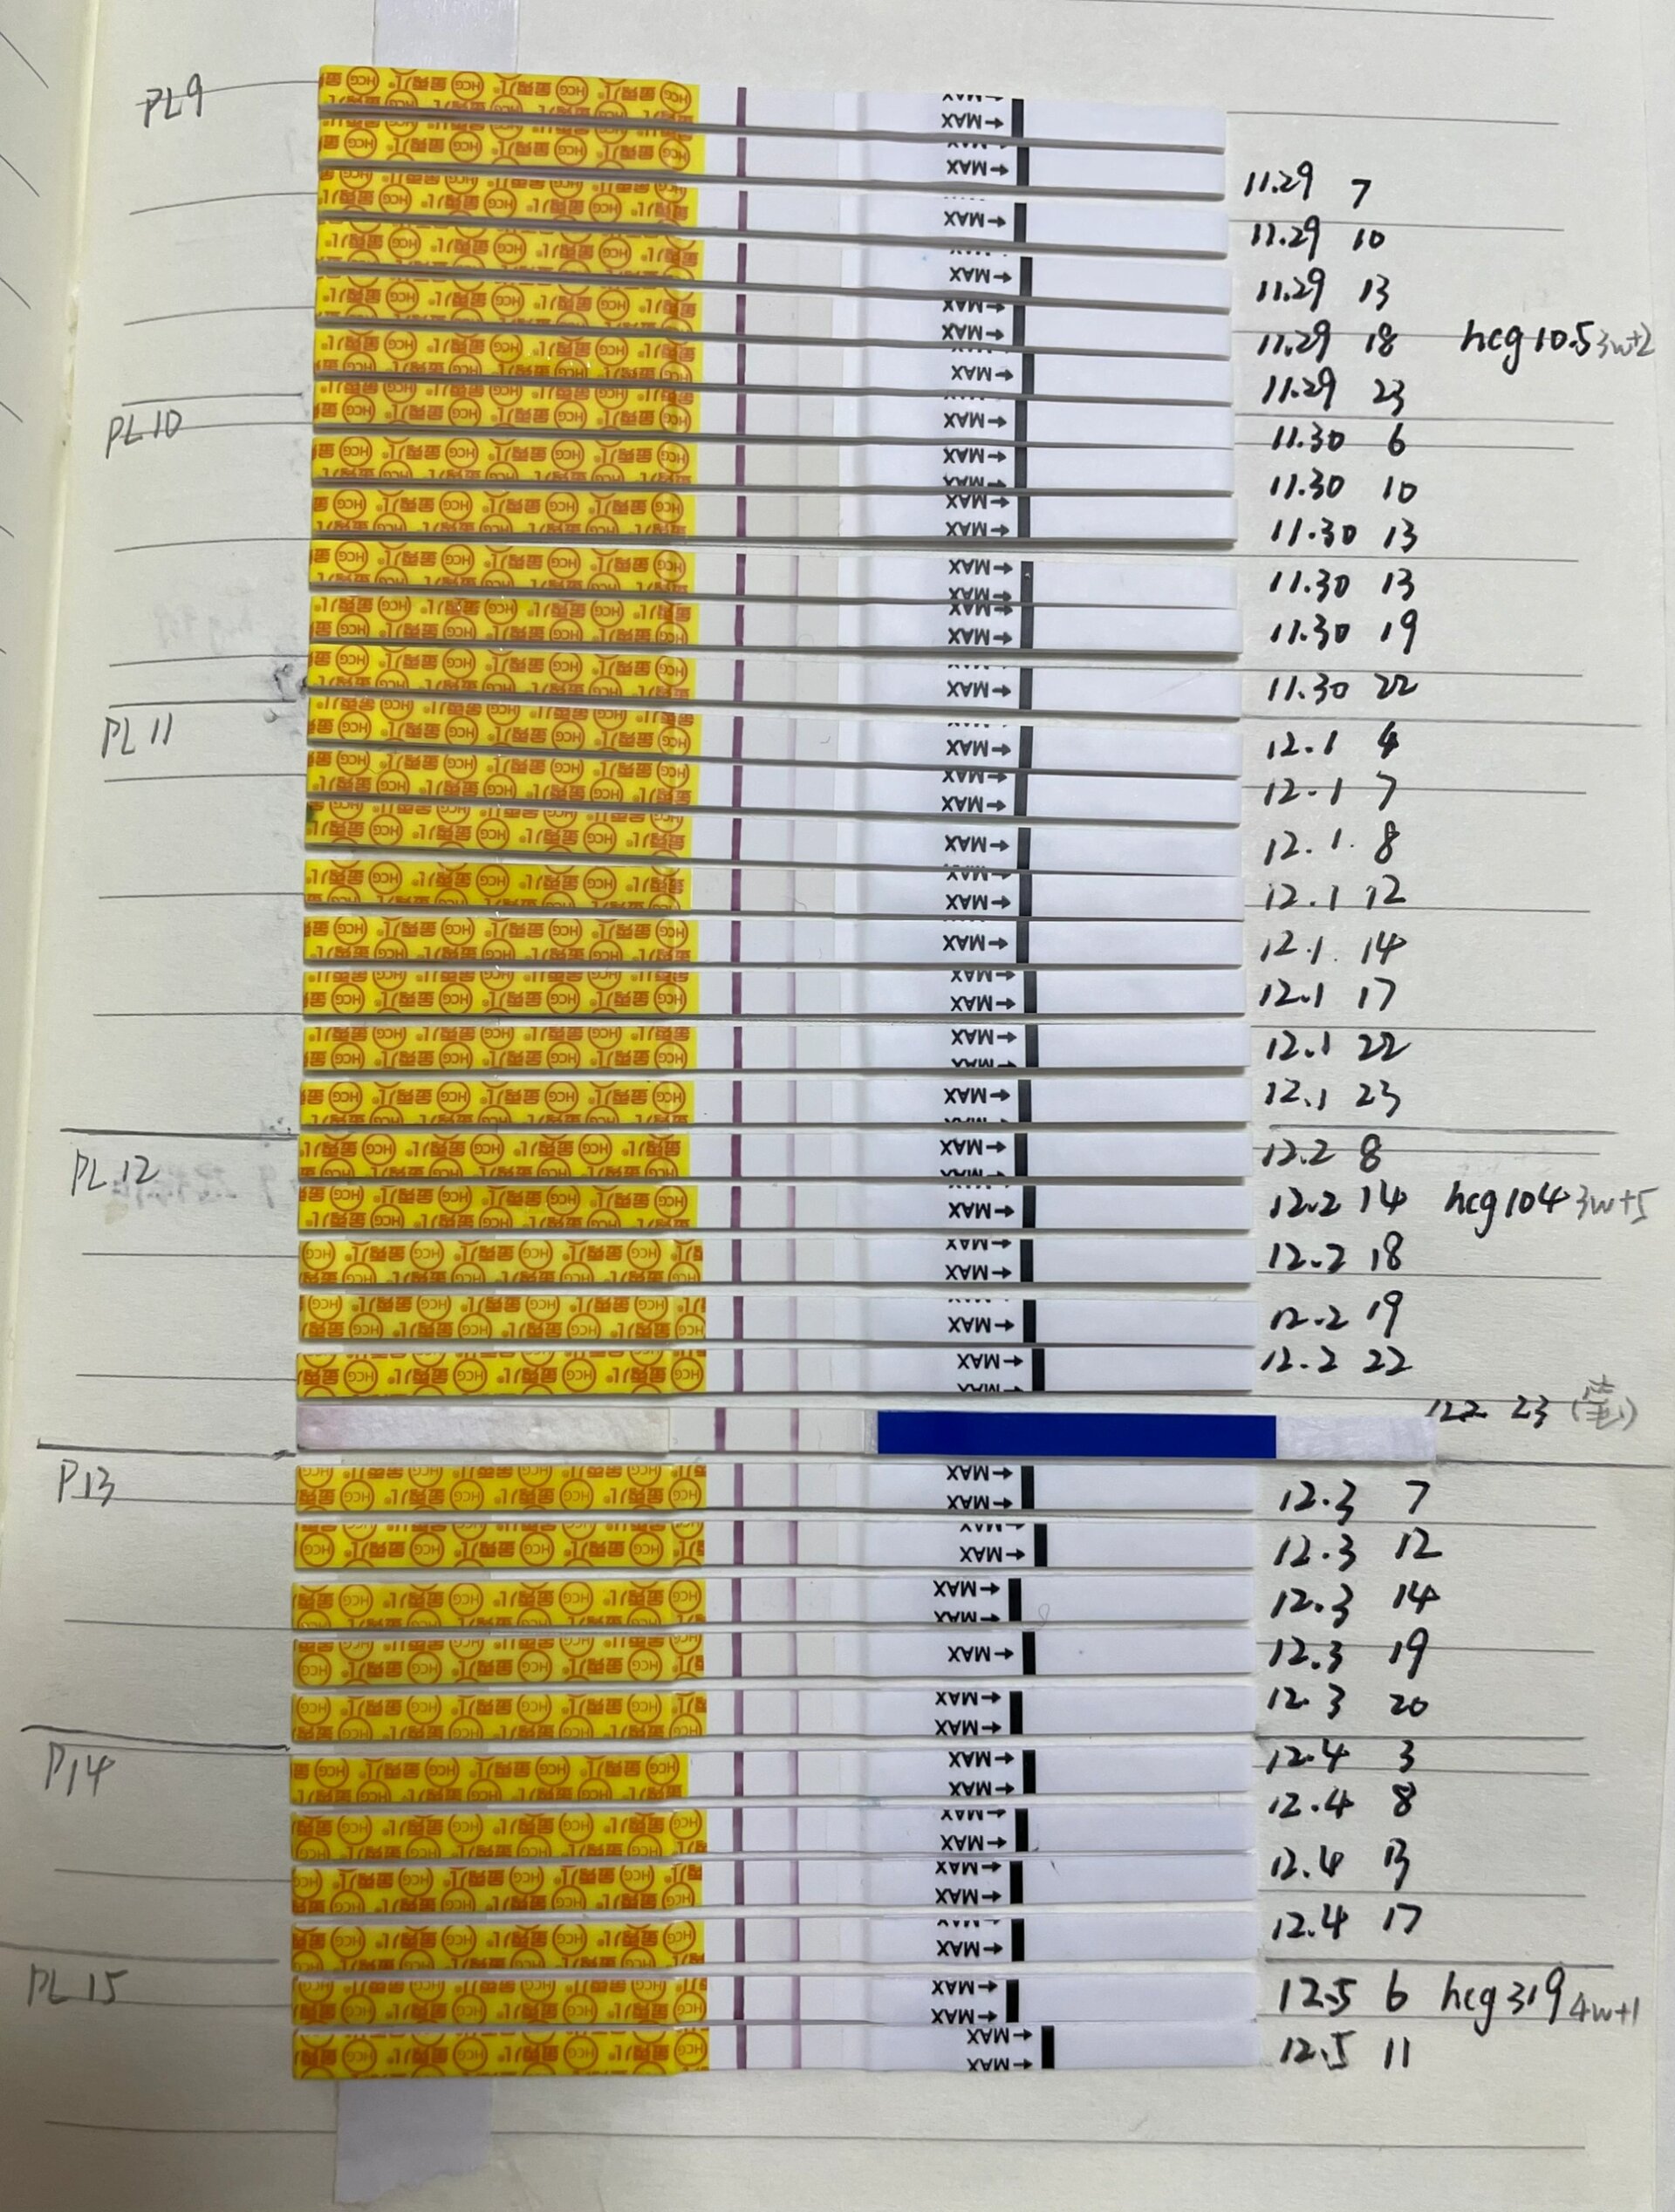 PL9
11.29 7
11.29 10
11.29 13
11.29 18 hcg 10.5 3w+2
11.29 23
PL10
11.30 6
11.30 10
11.30 13
11.30 13
11.30 19
11.30 22
PL11
12.1 4
12.1 7
12.1. 8
12.1 12
12.1. 14
12.1 17
12.1 22
12.1 23
PL12
12.2 8
12.2 14 hcg 104 3w+5
12.2 18
12.2 19
12.2 22
12.2 23
P13
12.3 7
12.3 12
12.3 14
12.3 19
12.3 20
P14
12.4 3
12.4 8
12.4 13
12.4 17
PL15
12.5 6 hcg 319 4w+1
12.5 11
HCG
MAX